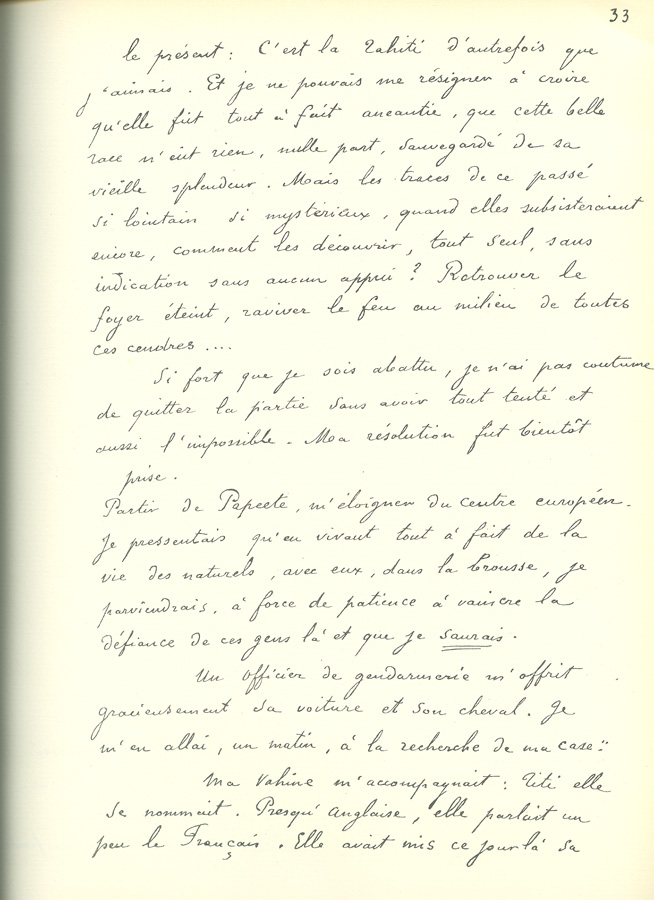 33
le présent : C'est la Tahiti d'autrefois que
j'aimais. Et je ne pouvais me résigner à croire
qu'elle fût tout à fait anéantie, que cette belle
race n'eût rien, nulle part, sauvegardé de sa
vieille splendeur. Mais les traces de ce passé
si lointain si mystérieux, quand elles subsisteraient
encore, comment les découvrir, tout seul, sans
indication sans aucun appui ? Retrouver le
foyer éteint, raviver le feu au milieu de toutes
ces cendres ....
Si fort que je sois abattu, je n'ai pas coutume
de quitter la partie sans avoir tout tenté et
aussi l'impossible - Ma résolution fut bientôt
prise.
Partir de Papeete, m'éloigner du centre européen.
Je pressentais qu'en vivant tout à fait de la
vie des naturels, avec eux, dans la brousse, je
parviendrais, à force de patience à vaincre la
défiance de ces gens là et que je saurais.
Un officier de gendarmerie m'offrit
gracieusement sa voiture et son cheval. Je
m'en allai, un matin, à la recherche de ma case :
Ma Vahine m'accompagnait : Titi elle
se nommait. Presqu'anglaise, elle parlait un
peu le Français. Elle avait mis ce jour là sa